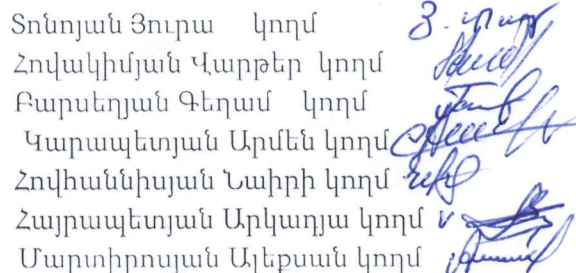 Տոնոյան Յուրա կողմ
Հովակիմյան Վարթեր կողմ
Բարսեղյան Գեղամ կողմ
Կարապետյան Արմեն կողմ
Հովհաննիսյան Նաիրի կողմ
Հայրապետյան Արկադյա կողմ
Մարտիրոսյան Ալեքսան կողմ